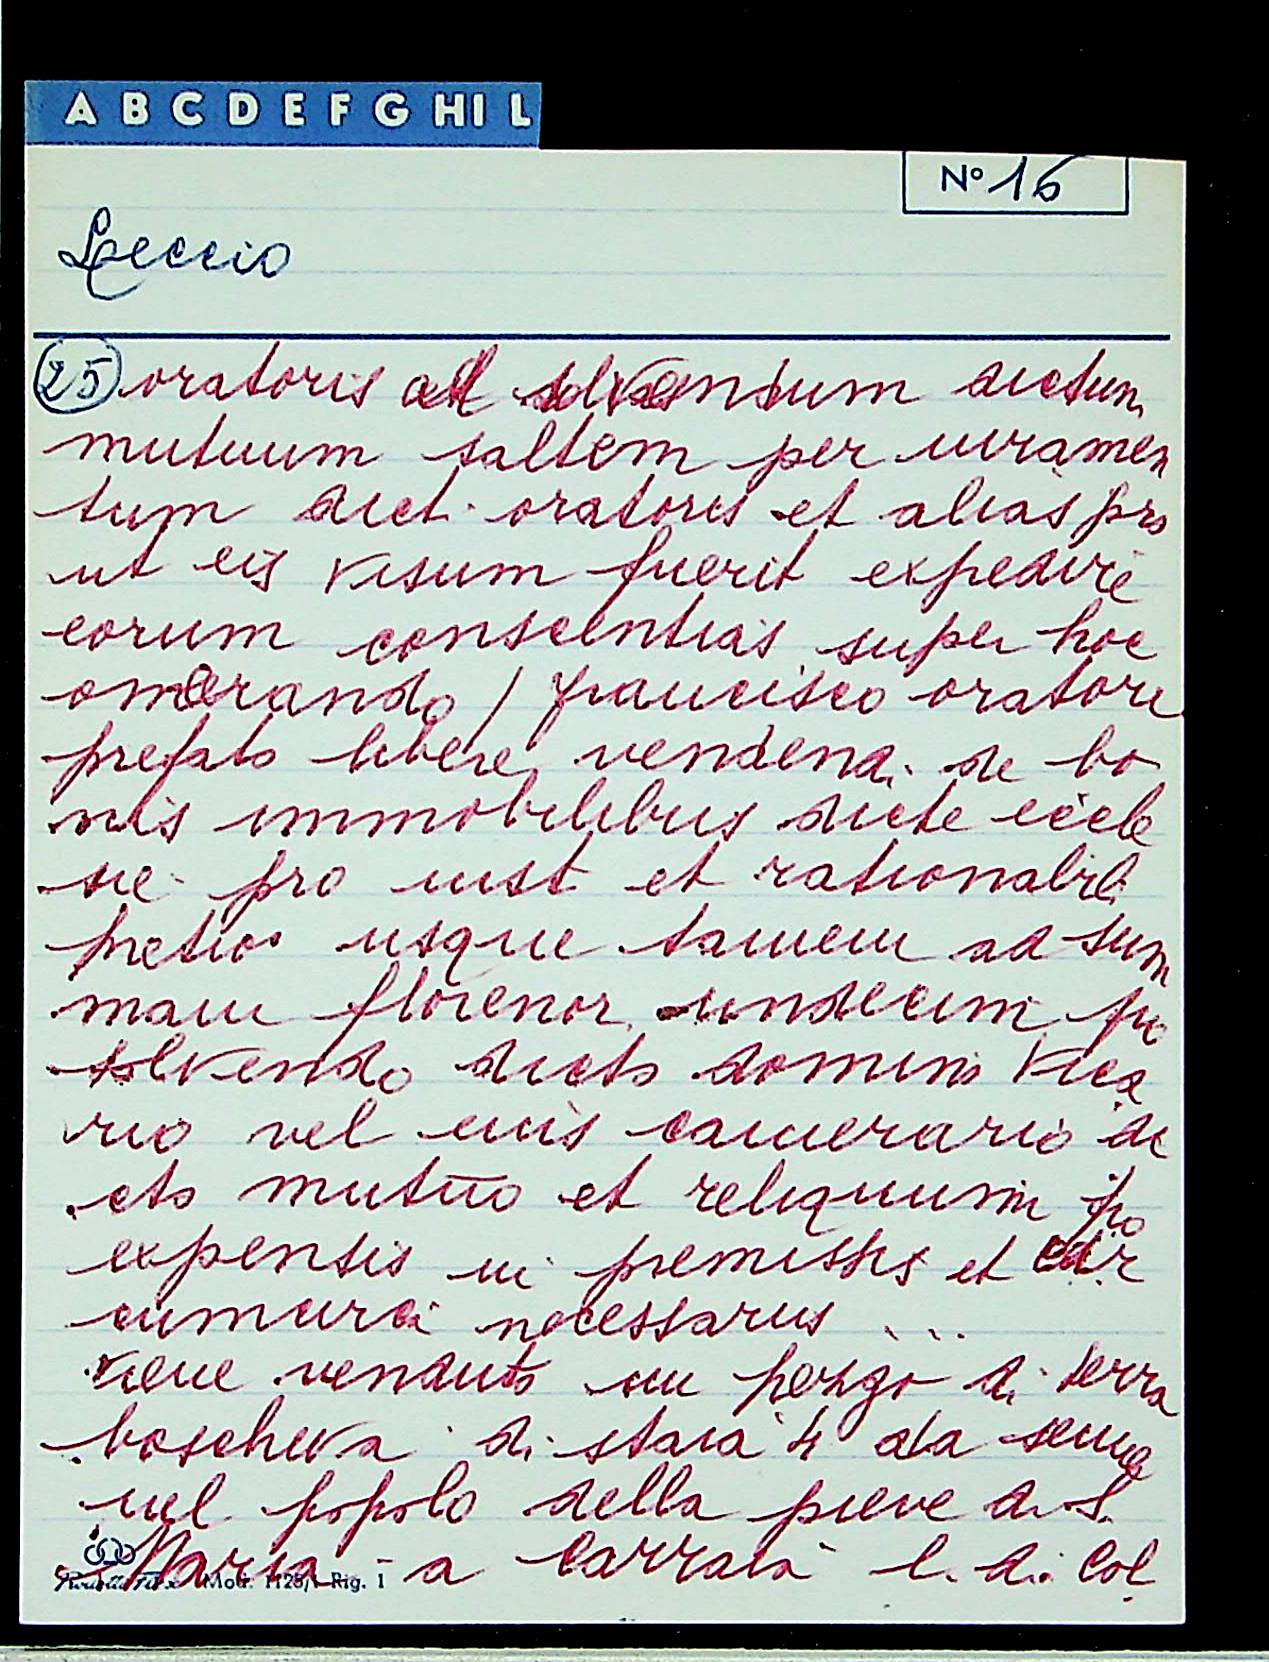 A B C D E F G H I L
N° 16
Leccio
25 oratoris ad solvendum dictum
mutuum saltem per iuramen
tum dict. oratoris et alias pro
ut eis visum fuerit expedire
eorum conscientias super hoc
onerando / Francisco oratore
prefato libere vendend. de bo
nis immobilibus dicte eccle
sie pro iust et rationabil.
pretio usque tamen ad sum
mam florenor. undecim pro
solvendo dicto domino Vica
rio vel eius camerario di
cto mutuo et reliquum pro
expensis in premissis et cir
cumcirca necessariis ...
viene venduto un pezzo di terra
boschiva di staia 4 da seme
nel popolo della pieve di S.
Maria a Carraia l. d. Col
Mod. 1125/1 Rig. 1